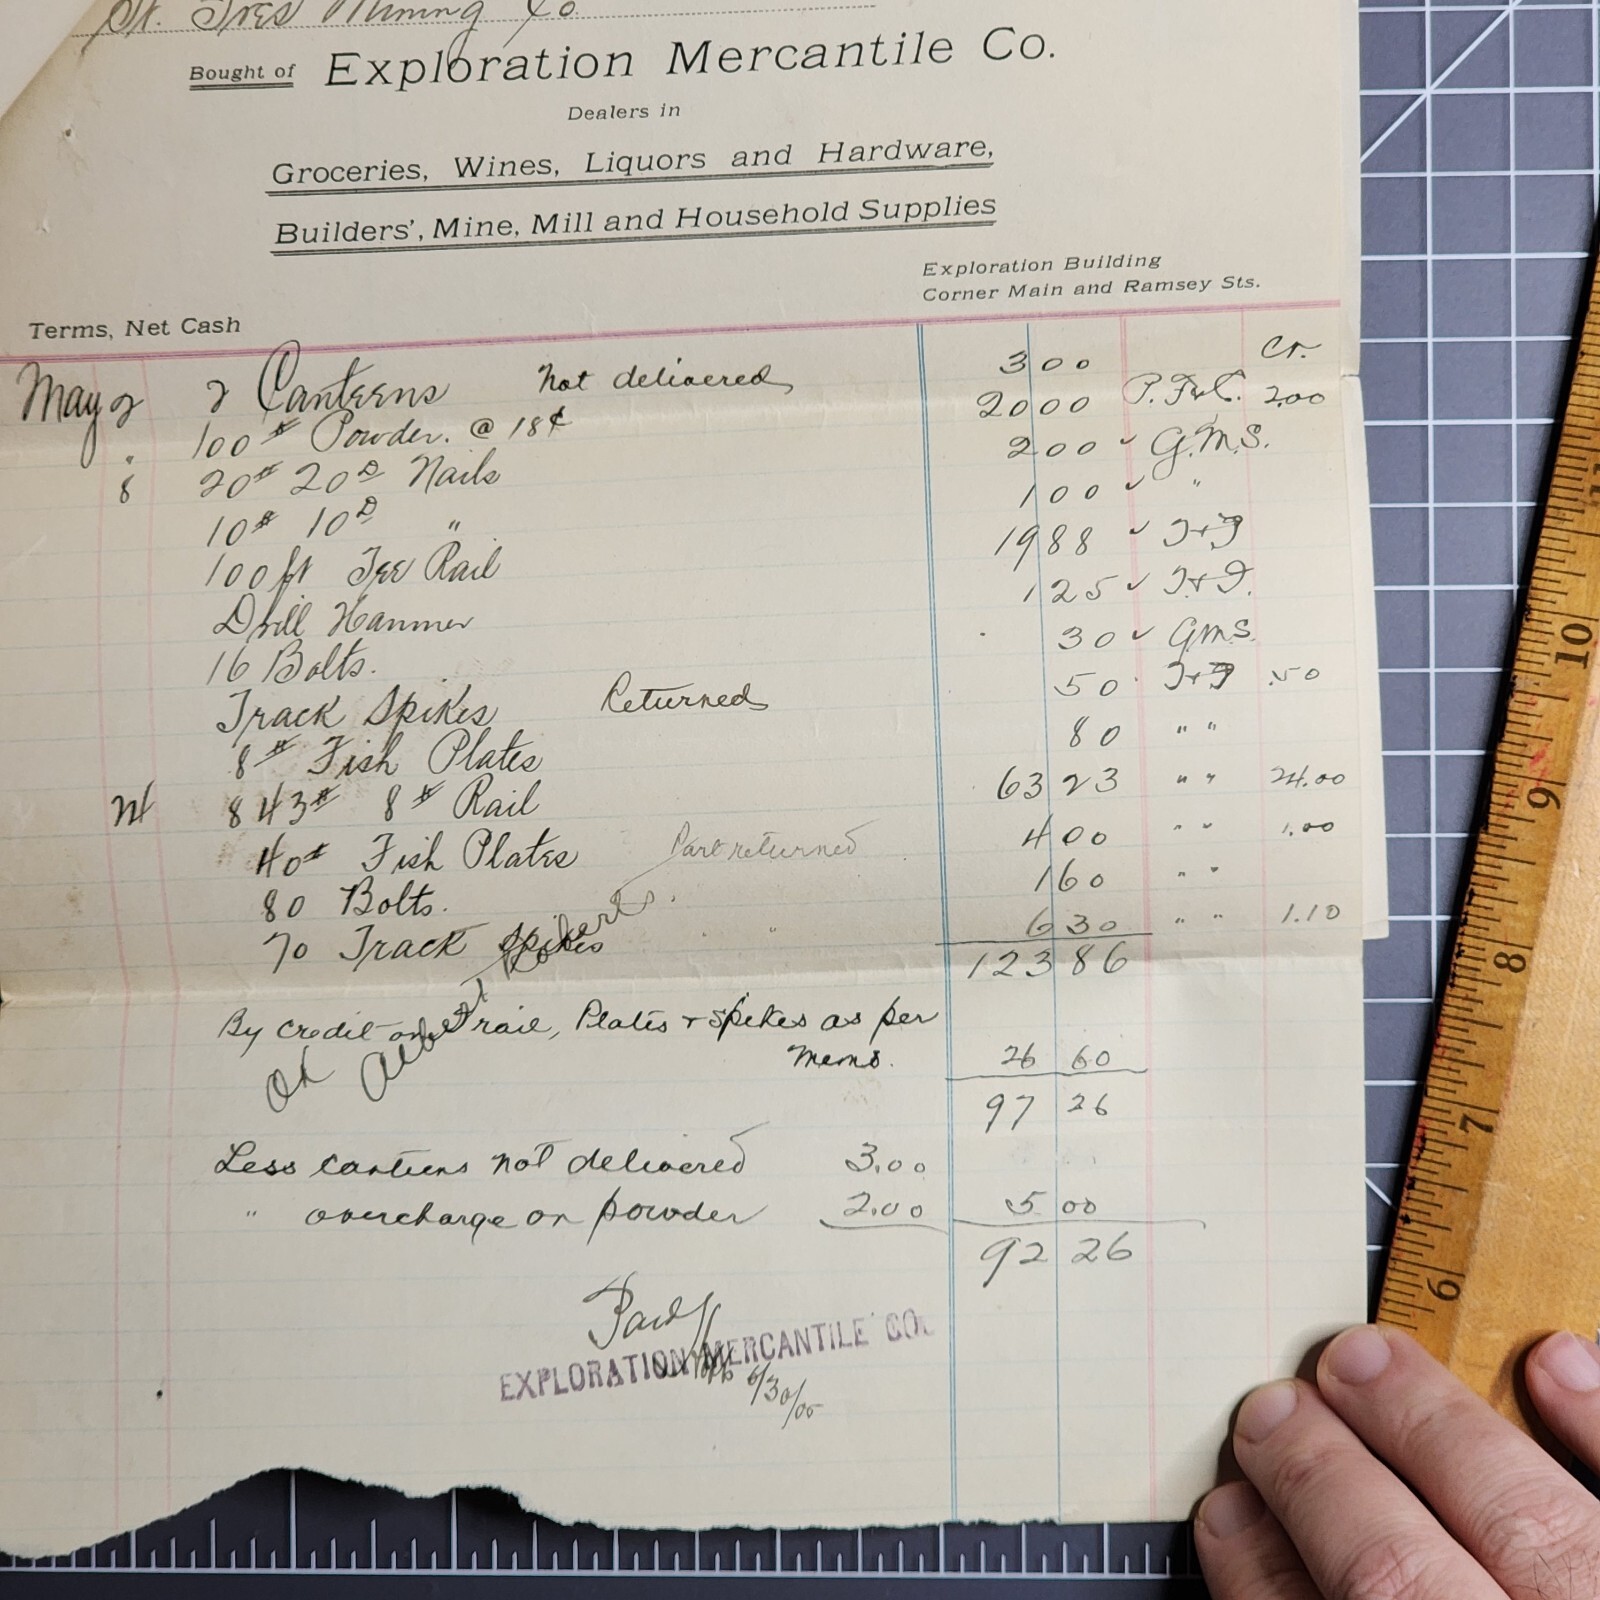 St. Ives Mining Co
Bought of Exploration Mercantile Co.
Dealers in
Groceries, Wines, Liquors and Hardware,
Builders', Mine, Mill and Household Supplies
Exploration Building
Corner Main and Ramsey Sts.
Terms, Net Cash
cr.
May 2 2 Canteens not delivered 3 00
" 100# Powder. @ 18¢ 20 00 P. F&C. 2.00
8 20# 20D Nails 2 00 ✓ G.M.S.
10# 10D " 1 00 ✓ "
100 ft Tee Rail 19 88 ✓ T+T
Drill Hammer 1 25 ✓ T+T.
16 Bolts. 30 ✓ G.M.S.
Track Spikes Returned 50 T+T .50
8# Fish Plates 80 " "
24 843# 8# Rail 63 23 " " 24.00
40# Fish Plates Part returned 4 00 " " 1.00
80 Bolts. 1 60 " "
70 Track Spikes " " 6 30 " " 1.10
123 86
By credit on rail, Plates + spikes as per
Memo. 26 60
OK Albert Roberts.
97 26
Less canteens not delivered 3.00
" overcharge on powder 2.00 5 00
92 26
Paid
EXPLORATION MERCANTILE CO.
6/30/05